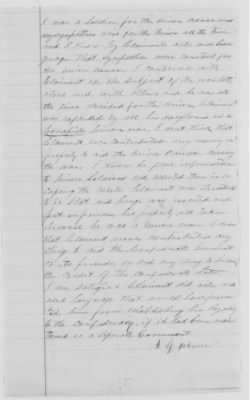 I was a Soldier for the Union cause and
my sympathies were for the Union all the time
and I know by Claimants acts and
language that sympathies were constant for
the Union cause. I conversed with
Claimant on the subject of the
and with others and he was all
the time decided for the Union. Claimant
was regarded by all his neighbors as a
Union man. I don't think that
Claimant ever contributed any money or
property to aid the Union cause during
the war. I know he gave information
to Union Soldiers and assisted them in
the rebels. Claimant was threatened
to be shot and hung was arrested and
put in prison his property all taken
because he was a Union man. I know
that Claimant never contributed any
thing to aid the Confederate Government
or its friends or did any thing to
the credit of the Confederate States.
I am satisfied Claimant did acts and
used language that would have
him from establishing his loyalty
to the Confederacy, if it had been
as a separate Government